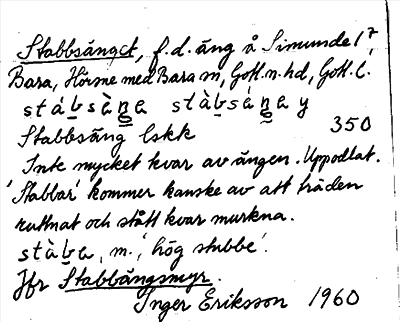 Stabbsänget, f.d. äng å Simunde 1⁷,
Bara, Hörsne med Bara sn, Gotl. n. hd, Gotl. l.
stábsàŋe stàbsáŋey
Stabbsäng lskk 350
Inte mycket kvar av ängen. Uppodlat.
'Stabbar' kommer kanske av att träden
ruttnat och stått kvar murkna.
stàba, m., 'hög stubbe'.
Jfr Stabbängsmyr.
Inger Eriksson 1960